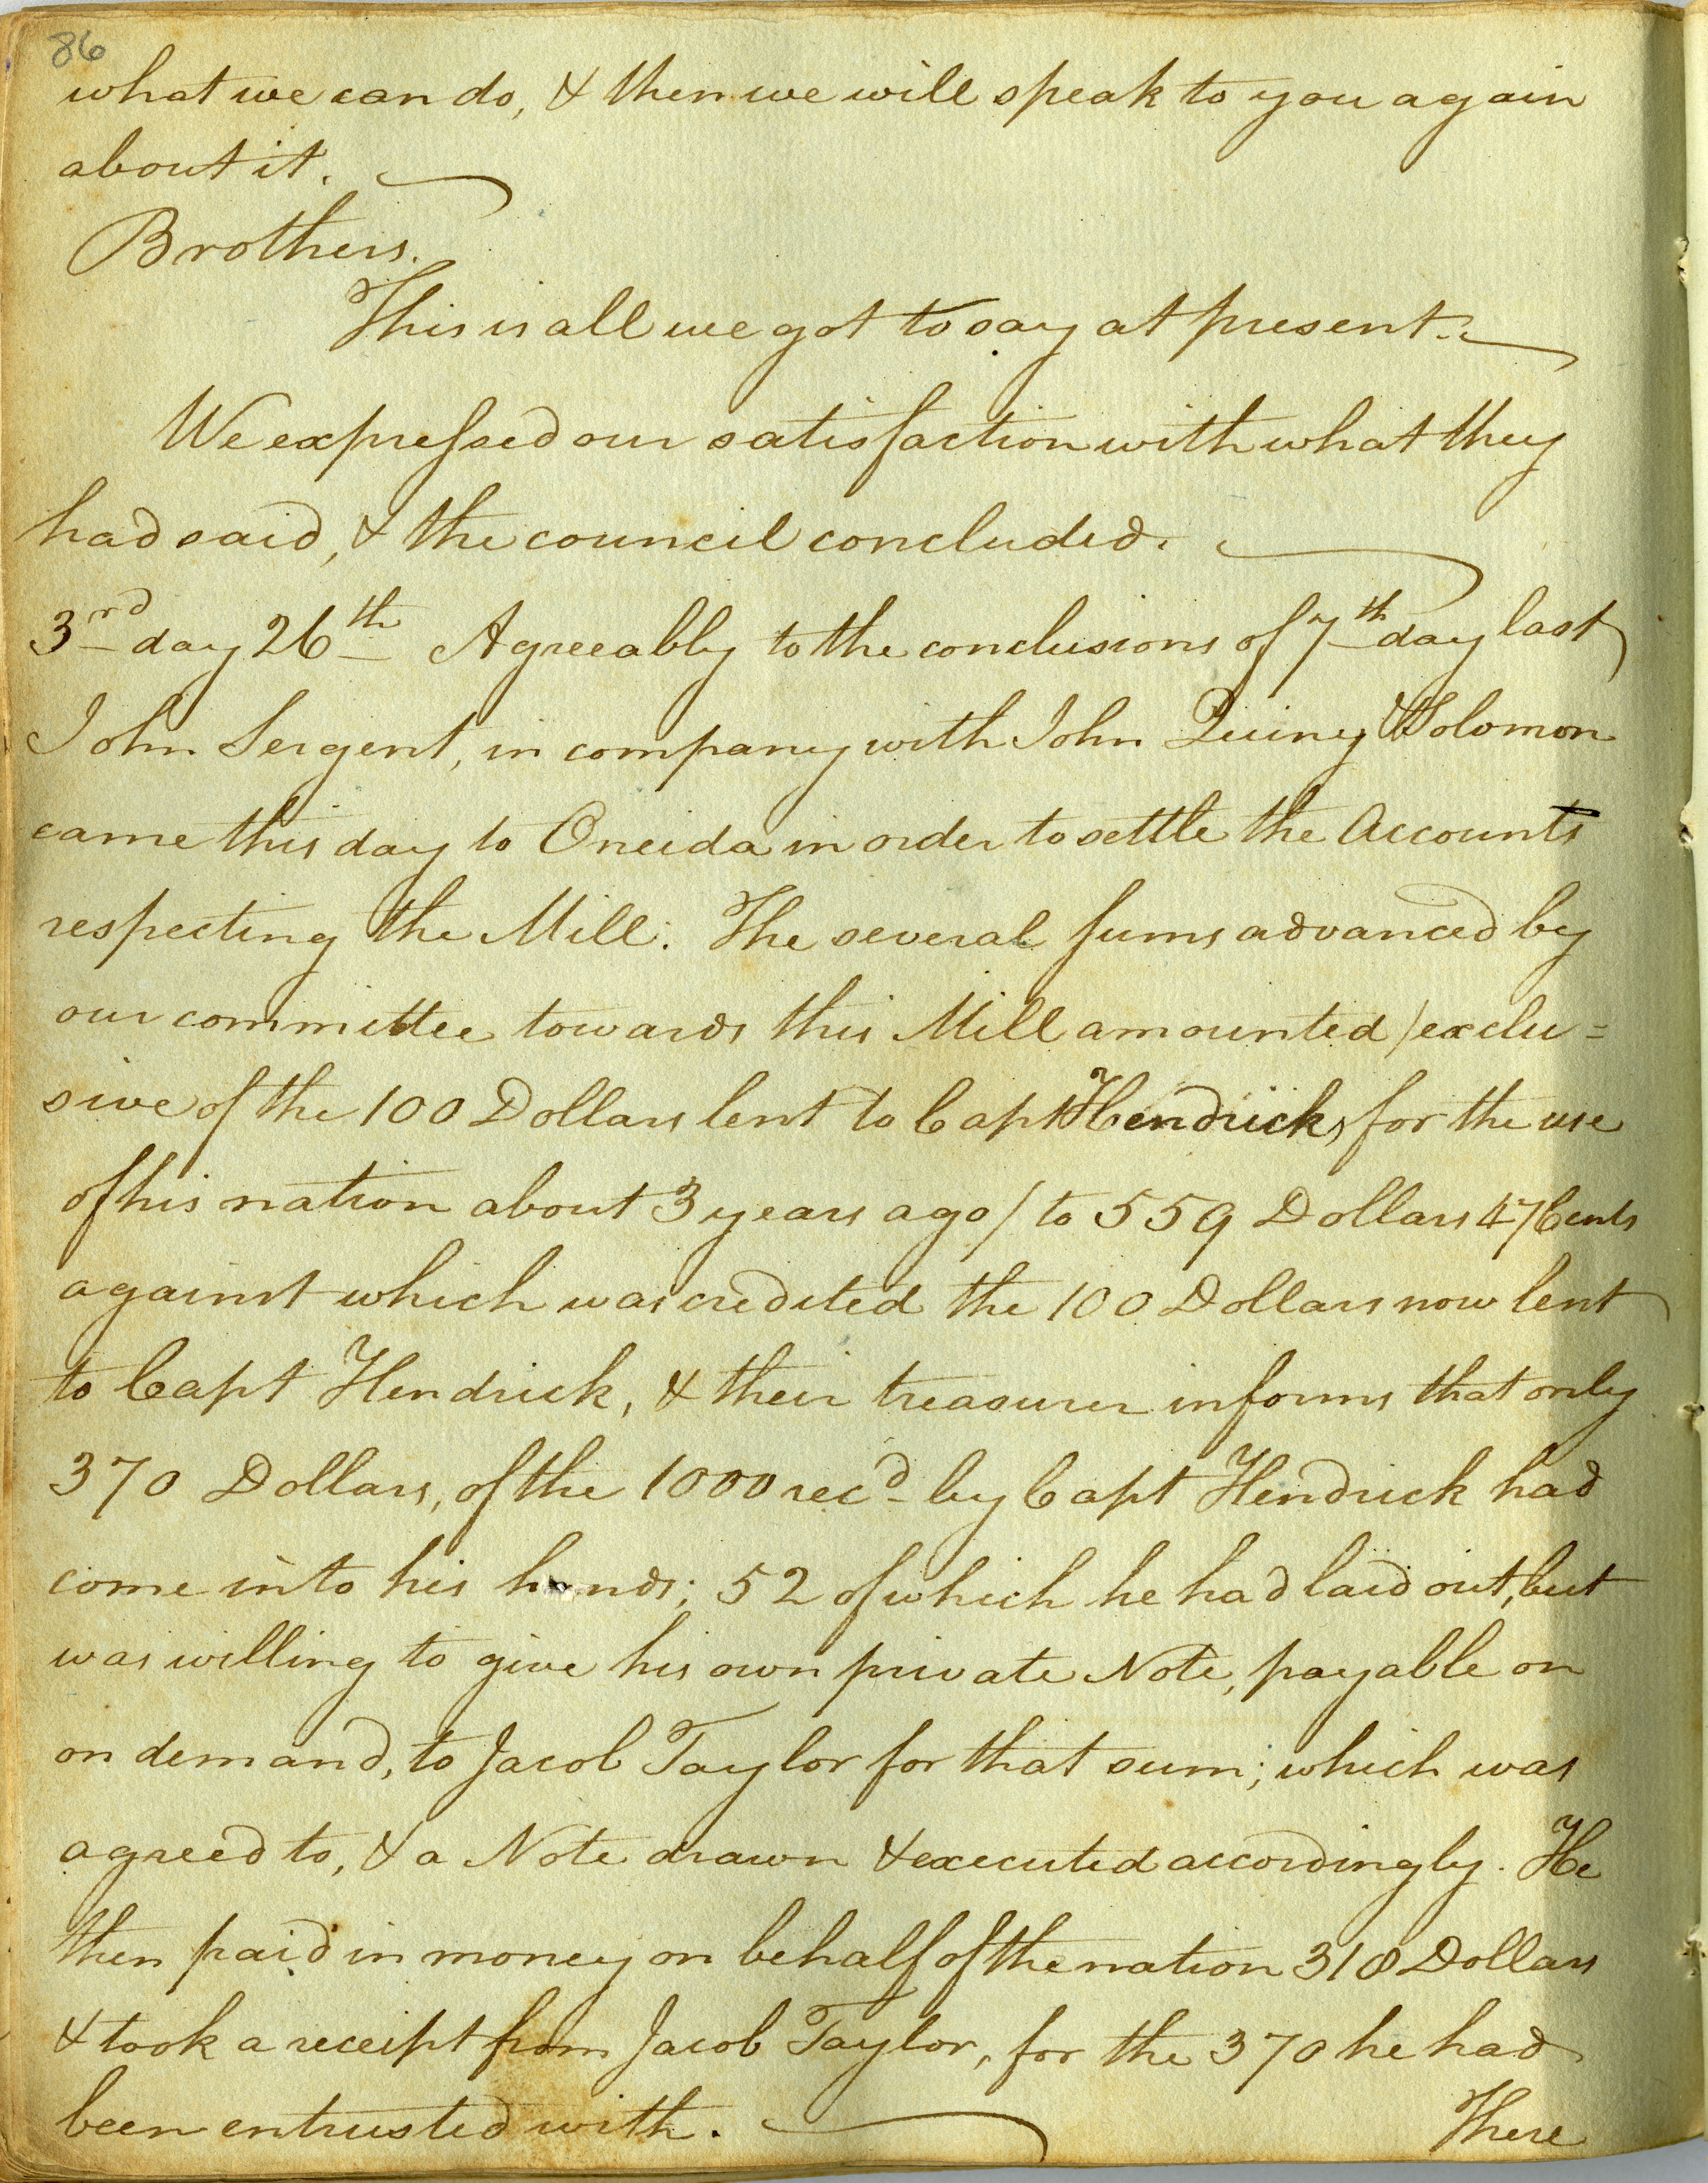 86
what we can do, & then we will speak to you again
about it.
Brothers.
This is all we got to say at present.
We expressed our satisfaction with what they
had said, & the council concluded.
3rd day 26th Agreeably to the conclusions of 7th day last
John Sergent, in company with John Quiny & Solomon
came this day to Oneida in order to settle the Accounts
respecting the Mill. The several sums advanced by
our committee towards this Mill amounted /exclu=
sive of the 100 Dollars lent to Capt Hendricks for the use
of his nation about 3 years ago/ to 559 Dollars 47 Cents
against which was credited the 100 Dollars now lent
to Capt Hendrick, & their treasurer informs that only
370 Dollars, of the 1000 recd by Capt Hendrick had
come into his hands; 52 of which he had laid out, but
was willing to give his own private Note, payable on
on demand, to Jacob Taylor for that sum; which was
agreed to, & a Note drawn & executed accordingly. He
then paid in money on behalf of the nation 318 Dollars
& took a receipt from Jacob Taylor, for the 370 he had
been entrusted with.
There